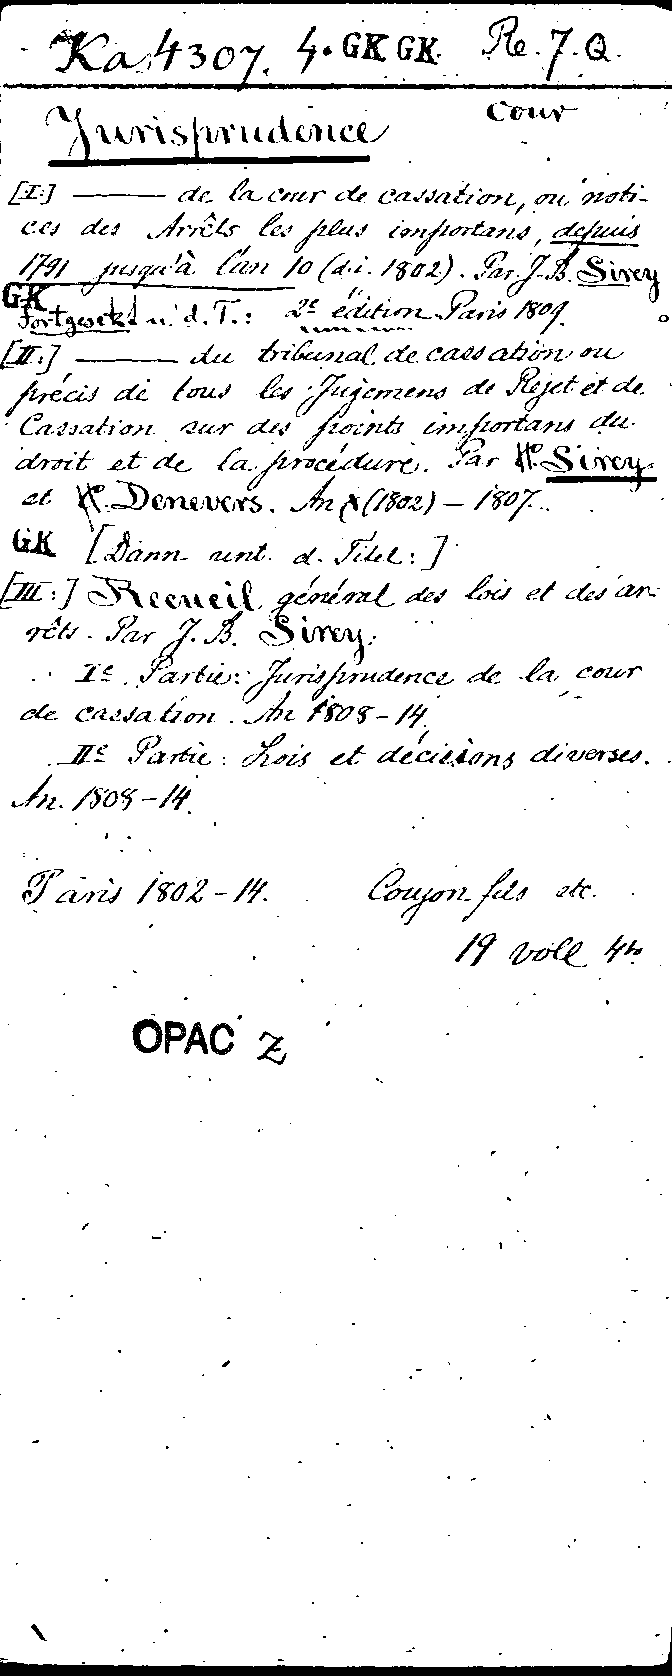 Ka 4307. 4. GK GK. Re. 7. Q.
Cour
Jurisprudence
[I:] —— de la cour de cassation, ou noti-
ces des Arrêts les plus importans, depuis
1791 jusqu'à l'an 10 (d.i. 1802). Par J. B. Sirey
GK
Fortgesetzt u. d. T.: 2e édition. Paris 1809.
[II:] —— du tribunal de cassation ou
précis de tous les Jugemens de Rejet et de
Cassation sur des points importans du
droit et de la procédure. Par H. Sirey
et H. Denevers. An X (1802) – 1807.
GK [Dann unt. d. Titel:]
[III:] Recueil général des lois et des ar-
rêts. Par J. B. Sirey.
Ie Partie: Jurisprudence de la cour
de cassation. An 1808–14.
IIe Partie: Lois et décisions diverses.
An. 1808–14.
Paris 1802–14. Coujon fils etc.
19 voll 4to.
OPAC Z